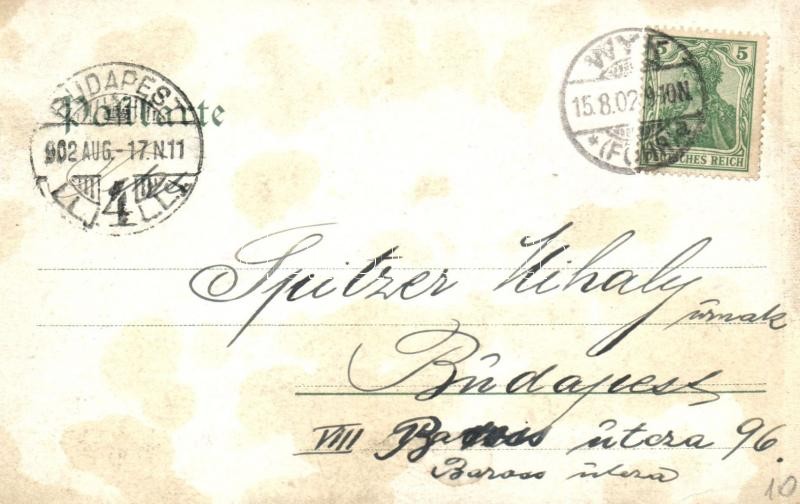 5 5
WYK
15.8.02. 9-10N
DEUTSCHES REICH
BUDAPEST
Postkarte
902 AUG.-17.N.11
4
Spitzer Mihaly
úrnak
Búdapest
VIII Baross útcza 96.
Baross útcza
10